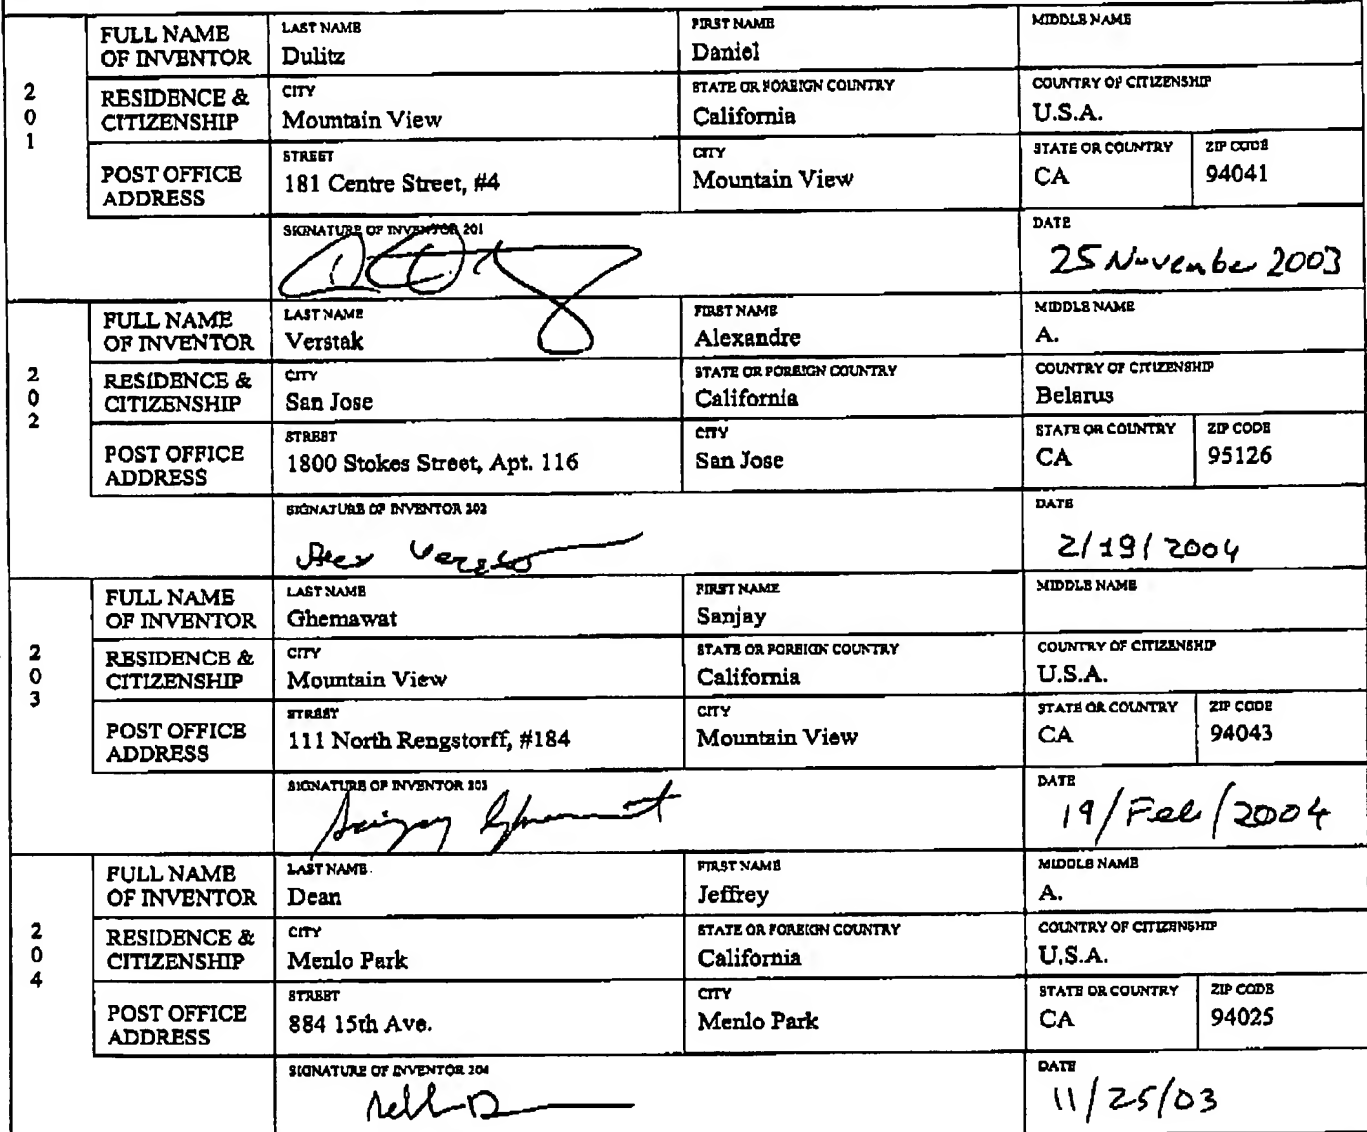 201
FULL NAME OF INVENTOR
LAST NAME
Dulitz
FIRST NAME
Daniel
MIDDLE NAME
RESIDENCE & CITIZENSHIP
CITY
Mountain View
STATE OR FOREIGN COUNTRY
California
COUNTRY OF CITIZENSHIP
U.S.A.
POST OFFICE ADDRESS
STREET
181 Centre Street, #4
CITY
Mountain View
STATE OR COUNTRY
CA
ZIP CODE
94041
SIGNATURE OF INVENTOR 201
DATE
25 November 2003
202
FULL NAME OF INVENTOR
LAST NAME
Verstak
FIRST NAME
Alexandre
MIDDLE NAME
A.
RESIDENCE & CITIZENSHIP
CITY
San Jose
STATE OR FOREIGN COUNTRY
California
COUNTRY OF CITIZENSHIP
Belarus
POST OFFICE ADDRESS
STREET
1800 Stokes Street, Apt. 116
CITY
San Jose
STATE OR COUNTRY
CA
ZIP CODE
95126
SIGNATURE OF INVENTOR 202
DATE
2/19/2004
203
FULL NAME OF INVENTOR
LAST NAME
Ghemawat
FIRST NAME
Sanjay
MIDDLE NAME
RESIDENCE & CITIZENSHIP
CITY
Mountain View
STATE OR FOREIGN COUNTRY
California
COUNTRY OF CITIZENSHIP
U.S.A.
POST OFFICE ADDRESS
STREET
111 North Rengstorff, #184
CITY
Mountain View
STATE OR COUNTRY
CA
ZIP CODE
94043
SIGNATURE OF INVENTOR 203
Sanjay Ghemawat
DATE
19/Feb/2004
204
FULL NAME OF INVENTOR
LAST NAME
Dean
FIRST NAME
Jeffrey
MIDDLE NAME
A.
RESIDENCE & CITIZENSHIP
CITY
Menlo Park
STATE OR FOREIGN COUNTRY
California
COUNTRY OF CITIZENSHIP
U.S.A.
POST OFFICE ADDRESS
STREET
884 15th Ave.
CITY
Menlo Park
STATE OR COUNTRY
CA
ZIP CODE
94025
SIGNATURE OF INVENTOR 204
DATE
11/25/03